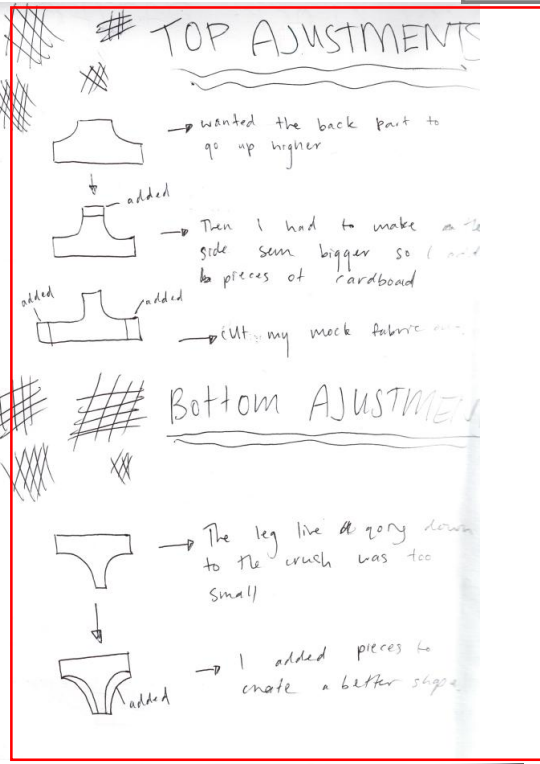 TOP AJUSTMENTS
wanted the back part to
go up higher
added
Then I had to make
side sem bigger so I
pieces of cardboard
added
added
cut my mock fabric
Bottom AJUSTMEN
The leg line gory down
to the crush was too
small
I added pieces to
create a better shape
added